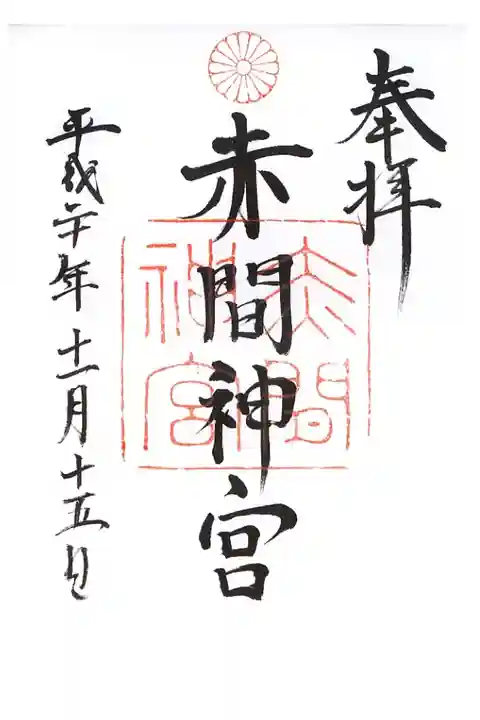 奉拝
赤間神宮
赤間
神宮
平成二十年十一月十五日